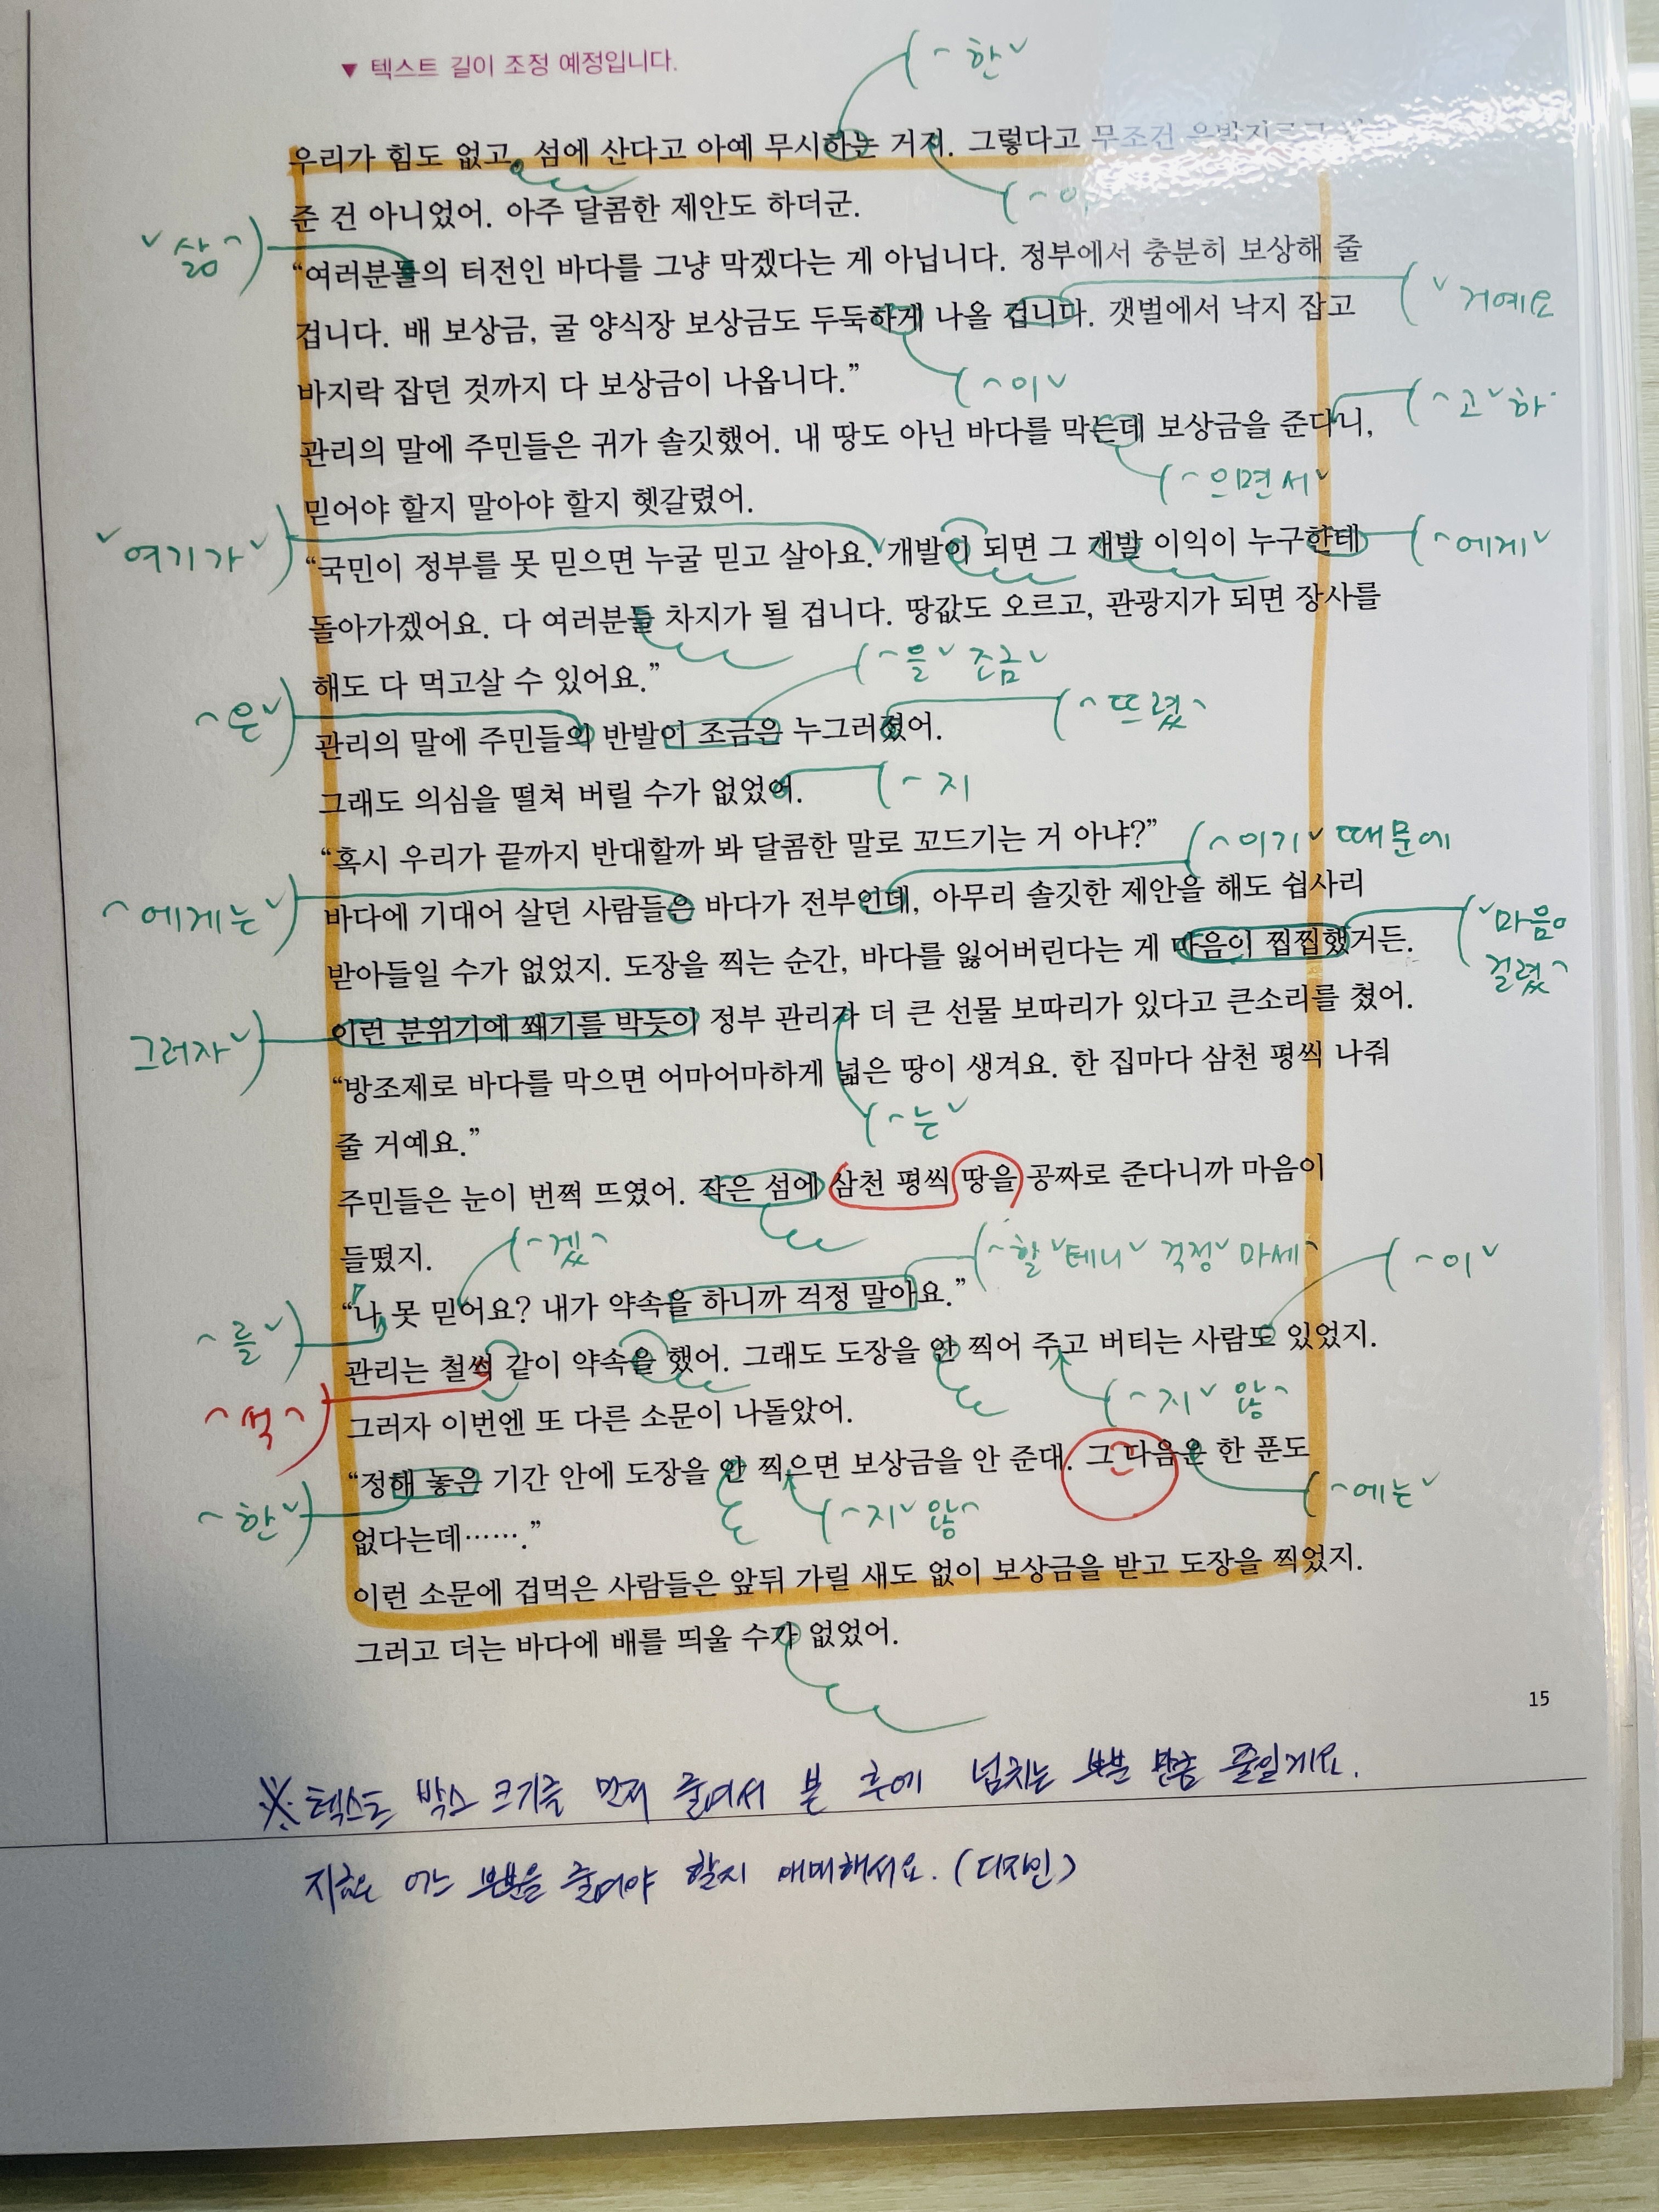 ▼ 텍스트 길이 조정 예정입니다.
한
우리가 힘도 없고, 섬에 산다고 아예 무시하는 거지. 그렇다고 무조건
준 건 아니었어. 아주 달콤한 제안도 하더군.
삶
“여러분들의 터전인 바다를 그냥 막겠다는 게 아닙니다. 정부에서 충분히 보상해 줄
거예요
겁니다. 배 보상금, 굴 양식장 보상금도 두둑하게 나올 겁니다. 갯벌에서 낙지 잡고
이
바지락 잡던 것까지 다 보상금이 나옵니다.”
고 하
관리의 말에 주민들은 귀가 솔깃했어. 내 땅도 아닌 바다를 막는데 보상금을 준다니,
으면서
믿어야 할지 말아야 할지 헷갈렸어.
여기가
“국민이 정부를 못 믿으면 누굴 믿고 살아요. 개발이 되면 그 개발 이익이 누구한테
에게
돌아가겠어요. 다 여러분들 차지가 될 겁니다. 땅값도 오르고, 관광지가 되면 장사를
을 조금
해도 다 먹고살 수 있어요.”
은
뜨렸
관리의 말에 주민들의 반발이 조금은 누그러졌어.
지
그래도 의심을 떨쳐 버릴 수가 없었어.
이기 때문에
“혹시 우리가 끝까지 반대할까 봐 달콤한 말로 꼬드기는 거 아냐?”
에게는
바다에 기대어 살던 사람들은 바다가 전부인데, 아무리 솔깃한 제안을 해도 쉽사리
받아들일 수가 없었지. 도장을 찍는 순간, 바다를 잃어버린다는 게 마음이 찝찝했거든.
걸렸
그러자
이런 분위기에 쐐기를 박듯이 정부 관리가 더 큰 선물 보따리가 있다고 큰소리를 쳤어.
“방조제로 바다를 막으면 어마어마하게 넓은 땅이 생겨요. 한 집마다 삼천 평씩 나눠
는
줄 거예요.”
주민들은 눈이 번쩍 뜨였어. 작은 섬에 삼천 평씩 땅을 공짜로 준다니까 마음이
겠
할 테니 걱정 마세
이
들떴지.
를
“나 못 믿어요? 내가 약속을 하니까 걱정 말아요.”
관리는 철썩 같이 약속을 했어. 그래도 도장을 안 찍어 주고 버티는 사람도 있었지.
석
지 않
그러자 이번엔 또 다른 소문이 나돌았어.
“정해 놓은 기간 안에 도장을 안 찍으면 보상금을 안 준대. 그 다음은 한 푼도
한
지 않
에는
없다는데…….”
이런 소문에 겁먹은 사람들은 앞뒤 가릴 새도 없이 보상금을 받고 도장을 찍었지.
그러고 더는 바다에 배를 띄울 수가 없었어.
15
※ 텍스트 박스 크기를 먼저 줄여서 본 후에 넘치는 부분 만큼 줄일게요.
지금은 어느 부분을 줄여야 할지 애매해서요. (디자인)